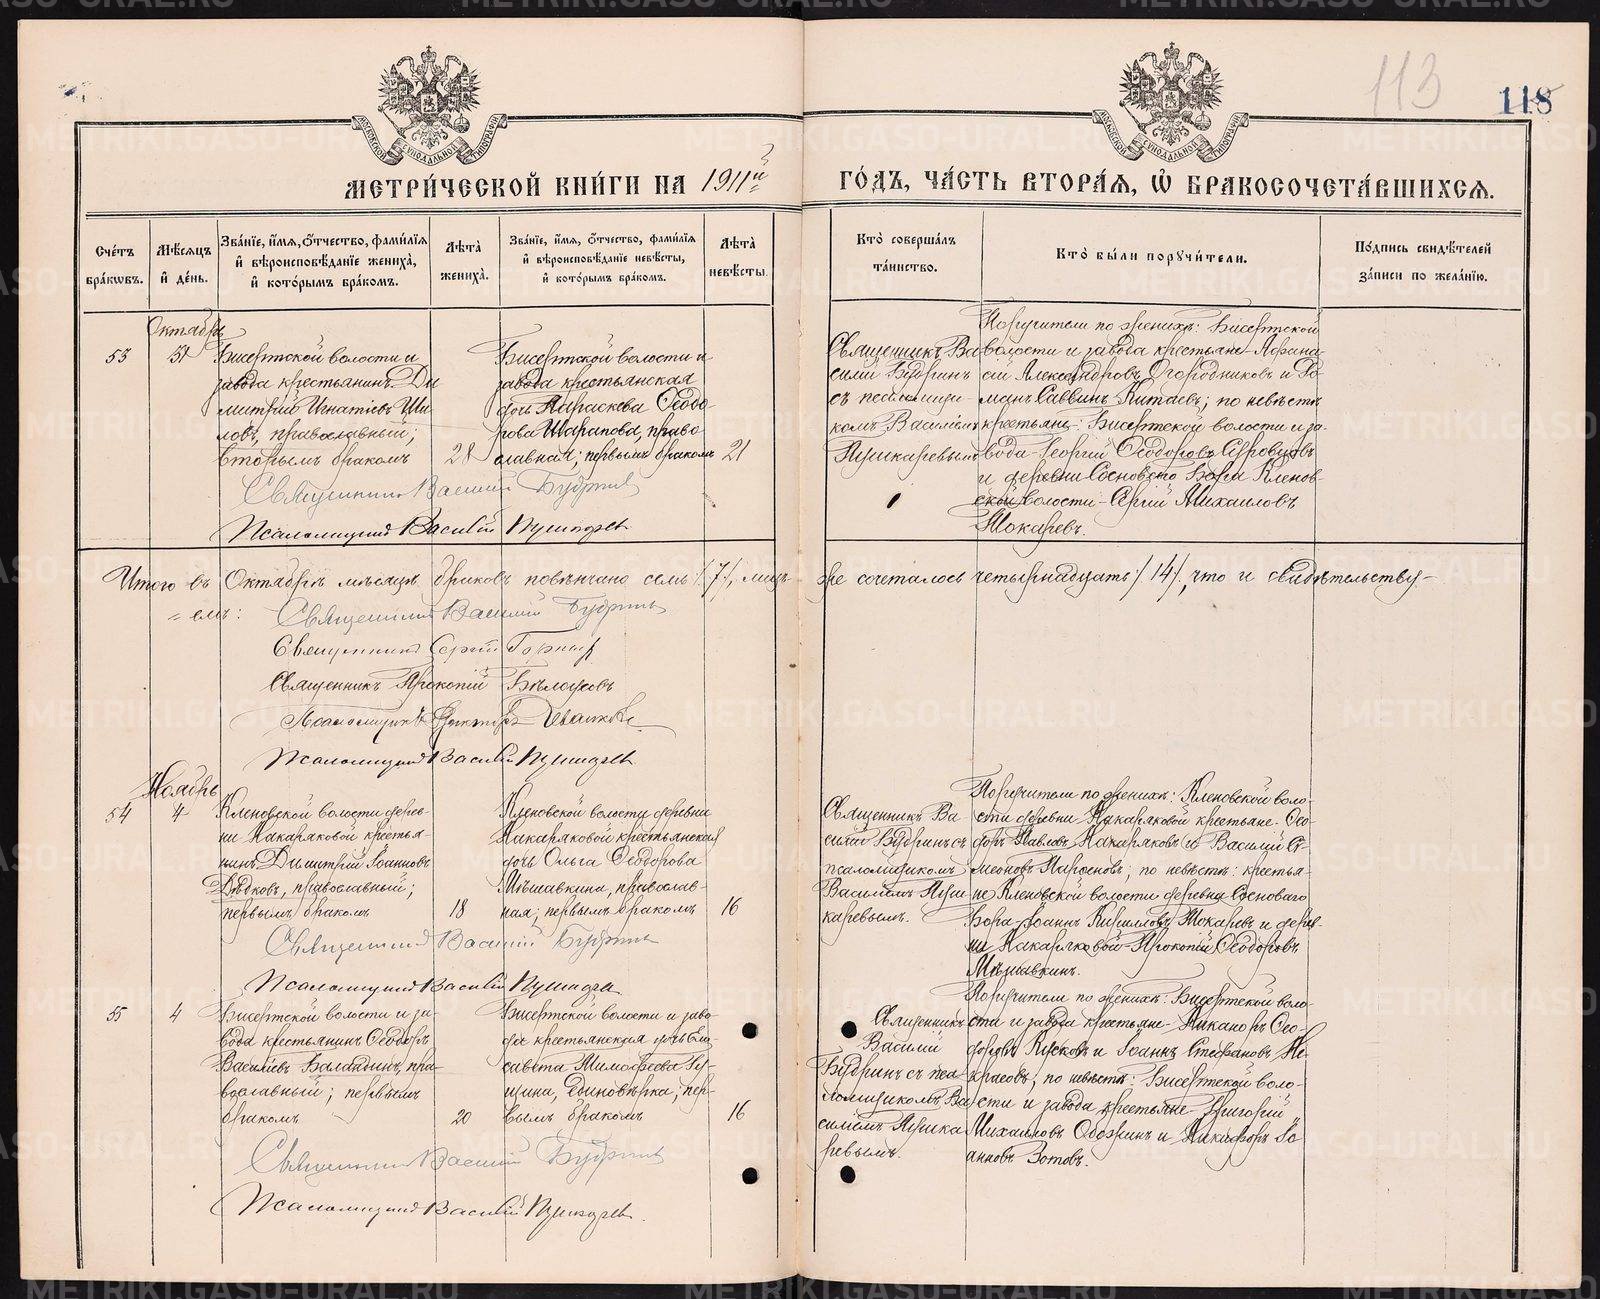 113
118
МОСКОВСКОЙ СУНОДАЛЬНОЙ ТИПОГРАФІИ
МОСКОВСКОЙ СУНОДАЛЬНОЙ ТИПОГРАФІИ
МЕТРИ́ЧЕСКОЙ КНИ́ГИ НА 1911й
ГО́ДЪ, ЧА́СТЬ ВТОРА́Я, Ѽ БРАКОСОЧЕТА́ВШИХСЯ.
Сче́тъ бра́кѡвъ.
Мѣ́сяцъ и҆ де́нь.
Зва́нїе, и҆́мя, ѻ҆́тчество, фами́лїя и҆ вѣроисповѣ́данїе жениха̀, и҆ кото́рымъ бра́комъ.
Лѣта̀ жениха̀.
Зва́нїе, и҆́мя, ѻ҆́тчество, фами́лїя и҆ вѣроисповѣ́данїе невѣ́сты, и҆ кото́рымъ бра́комъ.
Лѣта̀ невѣ́сты.
Кто̀ соверша́лъ та́инство.
Кто̀ бы́ли порꙋчи́тели.
По́дпись свидѣ́телей за́писи по жела́нїю.
Октябрь
53
31
Бисертской волости и
завода крестьянинъ Ди
митрій Игнатіевъ Ши
ловъ, православный;
вторымъ бракомъ
28
Бисертской волости и
завода крестьянская
дочь Параскева Ѳеодо-
рова Шарапова, право
славная; первымъ бракомъ
21
Священникъ Ва
силій Будринъ
съ псаломщи-
комъ Василіемъ
Пушкаревымъ
Поручители по женихѣ: Бисертской
волости и завода крестьяне Афана-
сій Александровъ Огородниковъ и Ро
манъ Саввинъ Китаевъ; по невѣстѣ
крестьяне: Бисертской волости и за-
вода Георгій Ѳеодоровъ
и деревни Сосноваго Бора Кленов-
ской волости Сергій Михаиловъ
Токаревъ.
Священникъ Василій Будринъ
Псаломщикъ Василій Пушкаревъ
Итого въ Октябрѣ мѣсяцѣ браковъ повѣнчано семь /7/, лицъ же сочеталось четырнадцать /14/, что и свидѣтельству-
=емъ:
Священникъ Василій Будринъ
Священникъ Сергій
Священникъ Прокопій Бѣлоусовъ
Псаломщикъ Викторъ
Псаломщикъ Василій Пушкаревъ
Ноябрь
54
4
Кленовской волости дерев-
ни Накаряковой крестья-
нинъ Димитрій Іоанновъ
Дѣдковъ, православный;
первымъ бракомъ
18
Кленовской волости деревни
Накаряковой крестьянская
дочь Ольга Ѳеодорова
Мѣшавкина, православ-
ная; первымъ бракомъ
16
Священникъ Ва
силій Будринъ съ
псаломщикомъ
Василіемъ Пуш
каревымъ.
Поручители по женихѣ: Кленовской воло-
сти деревни Накаряковой крестьяне: Ѳео-
доръ Павловъ Накаряковъ и Василій Си-
меоновъ; по невѣстѣ: крестья-
не Кленовской волости деревни Сосноваго
Бора Іоаннъ Кирилловъ Токаревъ и дерев-
ни Накаряковой Прокопій Ѳеодоровъ
Мѣшавкинъ.
Священникъ Василій Будринъ
Псаломщикъ Василій Пушкаревъ
55
4
Бисертской волости и за-
вода крестьянинъ Ѳеодоръ
Василіевъ Балдинъ, пра-
вославный; первымъ
бракомъ
20
Бисертской волости и заво-
да крестьянская дочь Ели-
савета Тимофеева
единовѣрка, пер-
вымъ бракомъ
16
Священникъ
Василій
Будринъ съ пса-
ломщикомъ Ва
силіемъ Пушка
ревымъ.
Поручители по женихѣ: Бисертской воло-
сти и завода крестьяне Никаноръ Ѳео-
доровъ Кусковъ и Іоаннъ Стефановъ Не-
красовъ; по невѣстѣ: Бисертской воло-
сти и завода крестьяне Григорій
Михаиловъ и Никифоръ Іо-
анновъ Зотовъ.
Священникъ Василій Будринъ
Псаломщикъ Василій Пушкаревъ.
METRIKI.GASO-URAL.RU